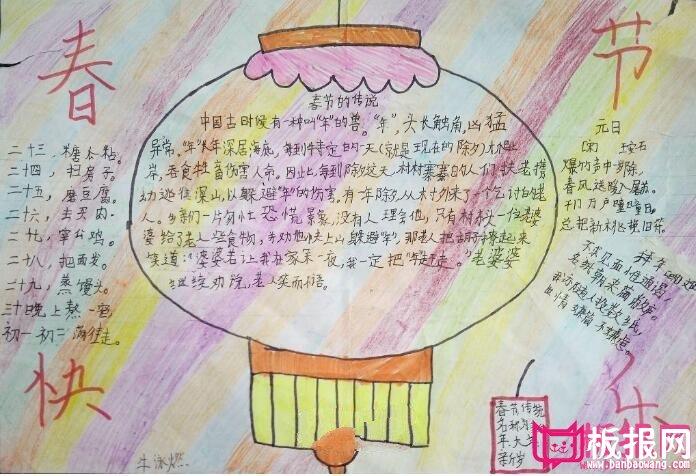 春
节
快
乐
春节的传说
中国古时候有一种叫“年”的兽。“年”,头长触角,凶猛
异常。“年”长年深居海底,每到特定的一天(就是现在的除夕)才爬上
岸,吞食牲畜伤害人命。因此,每到除夕这天,村村寨寨的人们扶老携
幼逃往深山,以躲避“年”的伤害。有一年除夕,从村外来了个乞讨的老
人。乡亲们一片匆忙恐慌景象,没有人理会他,只有村头一位老婆
婆给了老人些食物,并劝他快上山躲避“年”,那老人把胡子撩起来
笑道:“婆婆若让我在家呆一夜,我一定把“年”赶走。”老婆婆
继续劝说,老人笑而不语。
二十三,糖瓜粘。
二十四,扫房子。
二十五,磨豆腐。
二十六,去买肉。
二十七,宰公鸡。
二十八,把面发。
二十九,蒸馒头。
三十晚上熬一宿
初一初二满街走。
元日
王安石
爆竹声中一岁除,
春风送暖入屠苏。
千门万户曈曈日,
总把新桃换旧符。
拜年
不求见面惟通谒,
名纸朝来满敝庐。
我亦随人投数纸,
春节传统
名称
年大
板报网
www.banbaowang.com